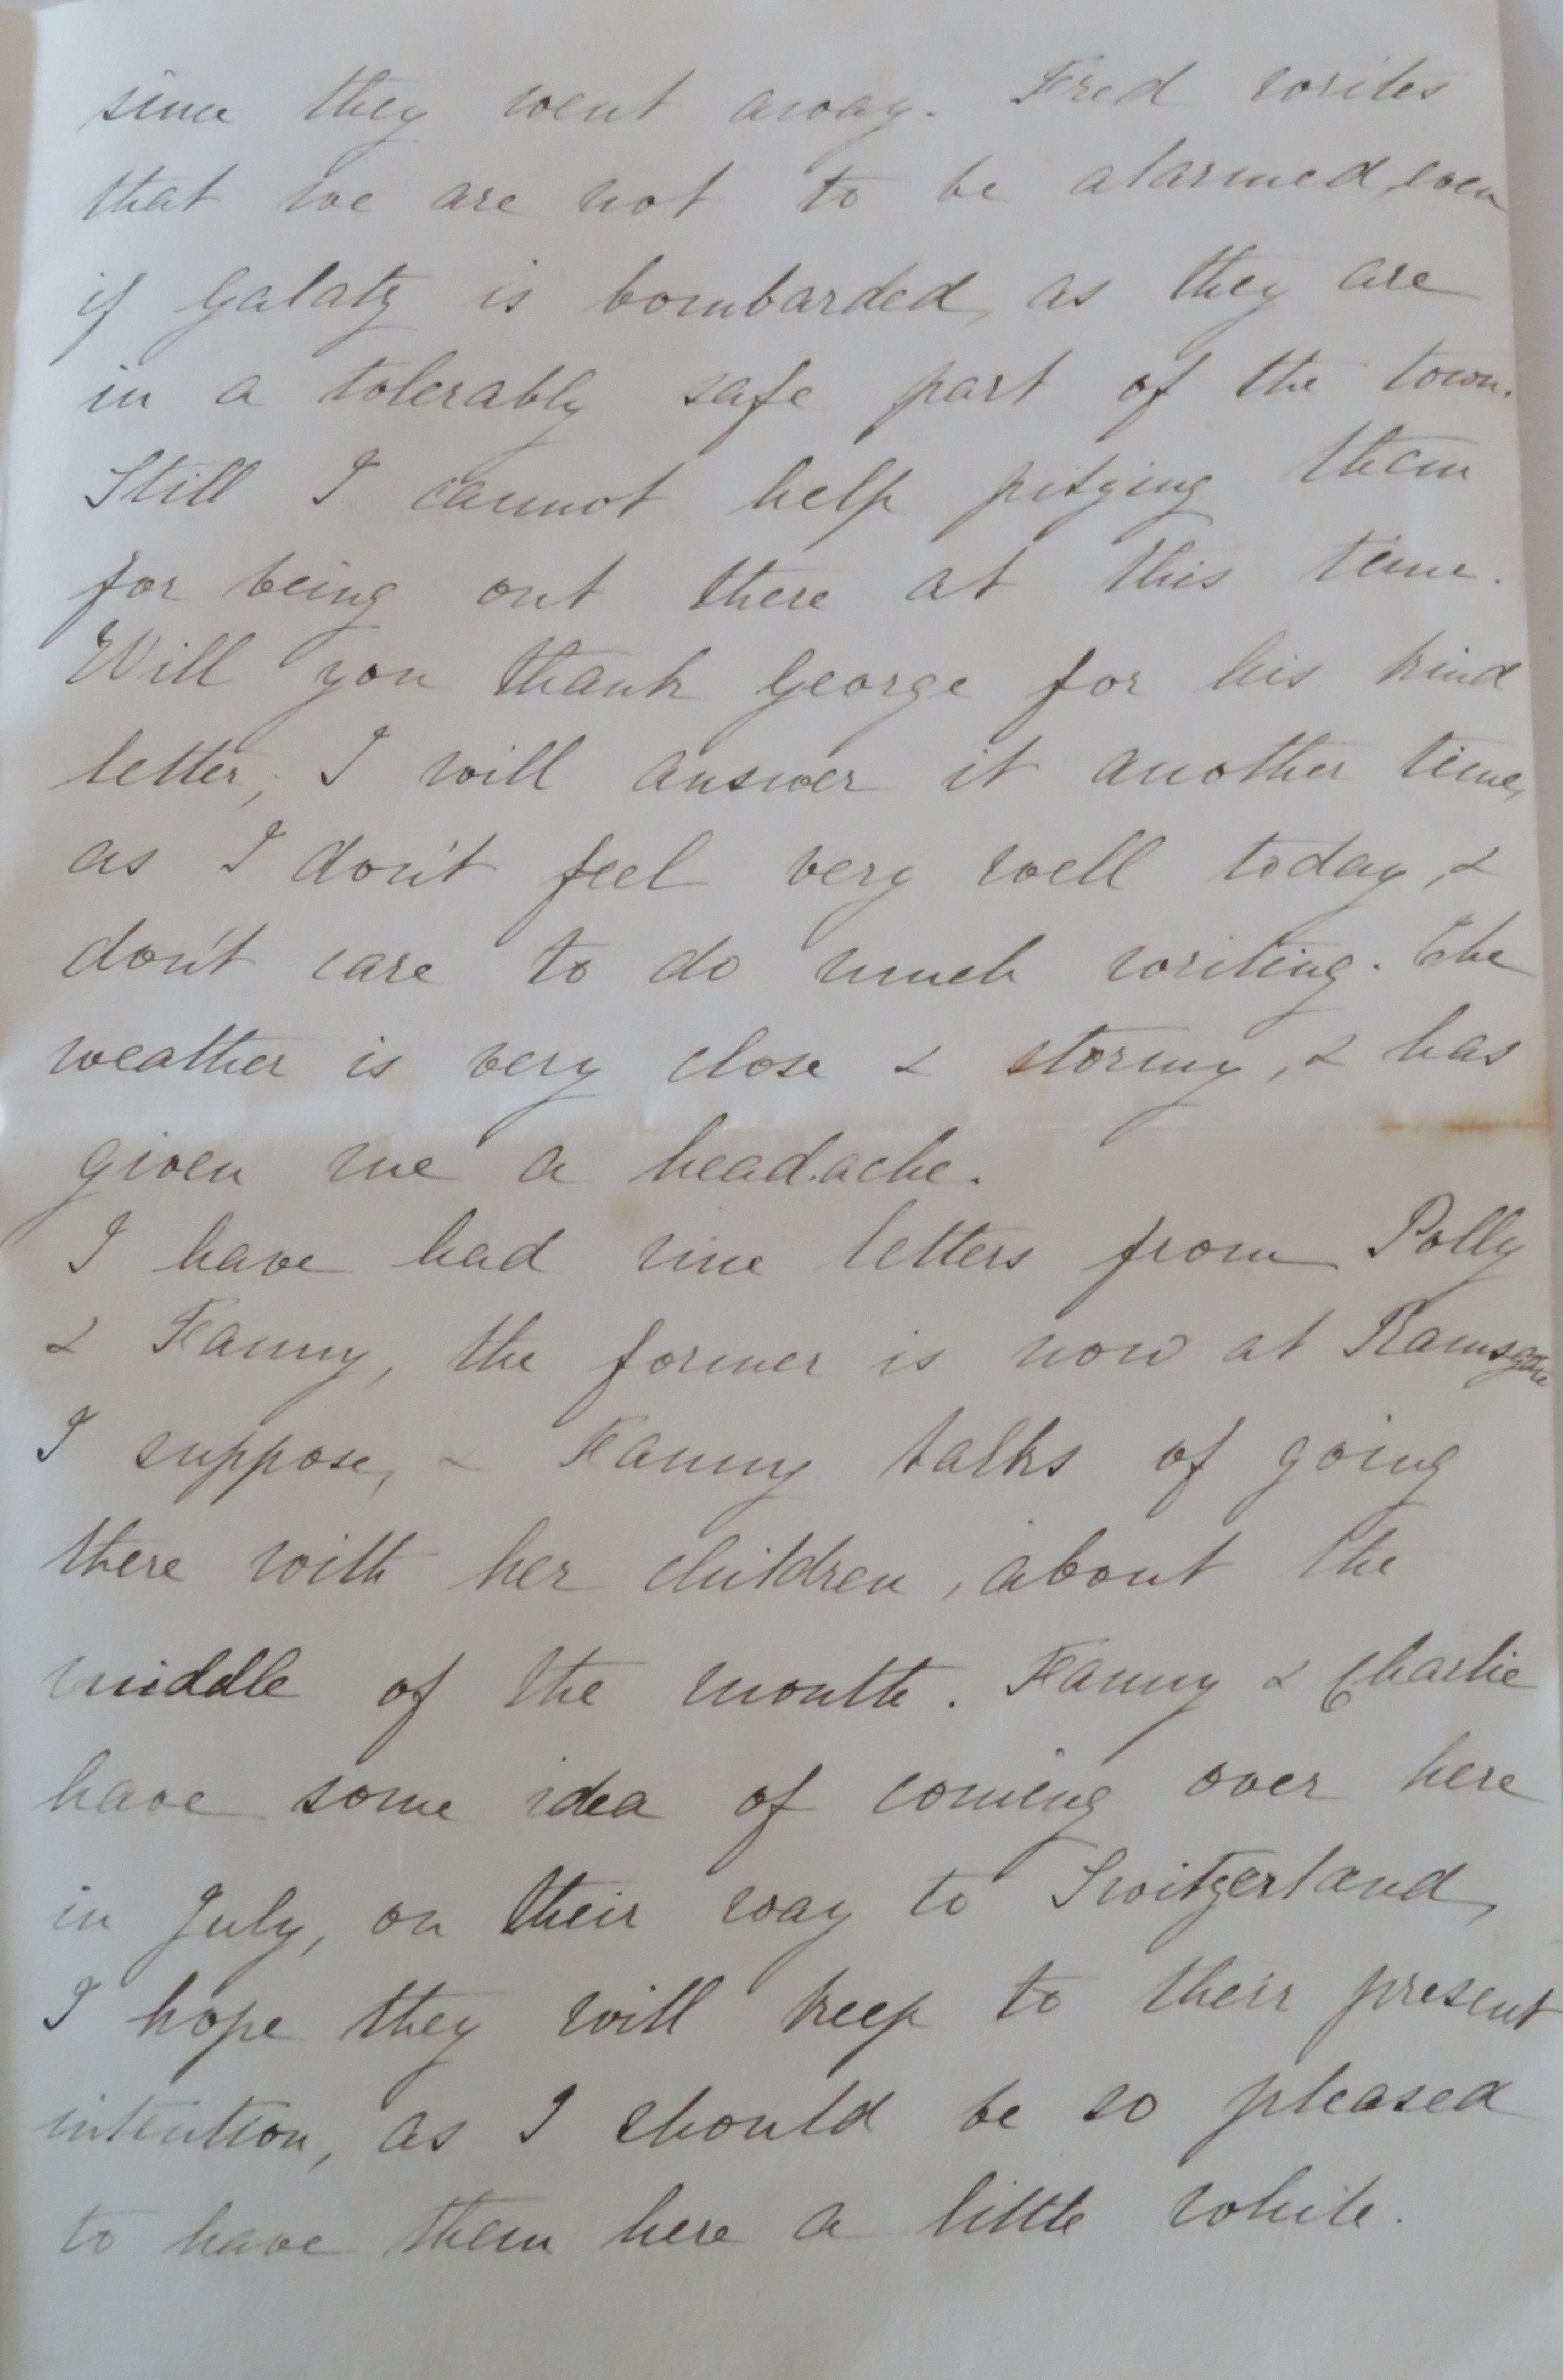 since they went away. Fred writes
that we are not to be alarmed, even
if Galatz is bombarded, as they are
in a tolerably safe part of the town.
Still I cannot help pitying them
for being out there at this time.
Will you thank George for his kind
letter, I will answer it another time,
as I don't feel very well today, &
don't care to do much writing. The
weather is very close & stormy, & has
given me a head.ache.
I have had nice letters from Polly
& Fanny, the former is now at Ramsgate
I suppose, & Fanny talks of going
there with her children, about the
middle of the month. Fanny & Charlie
have some idea of coming over here
in July, on their way to Switzerland,
I hope they will keep to their present
intention, as I should be so pleased
to have them here a little while.